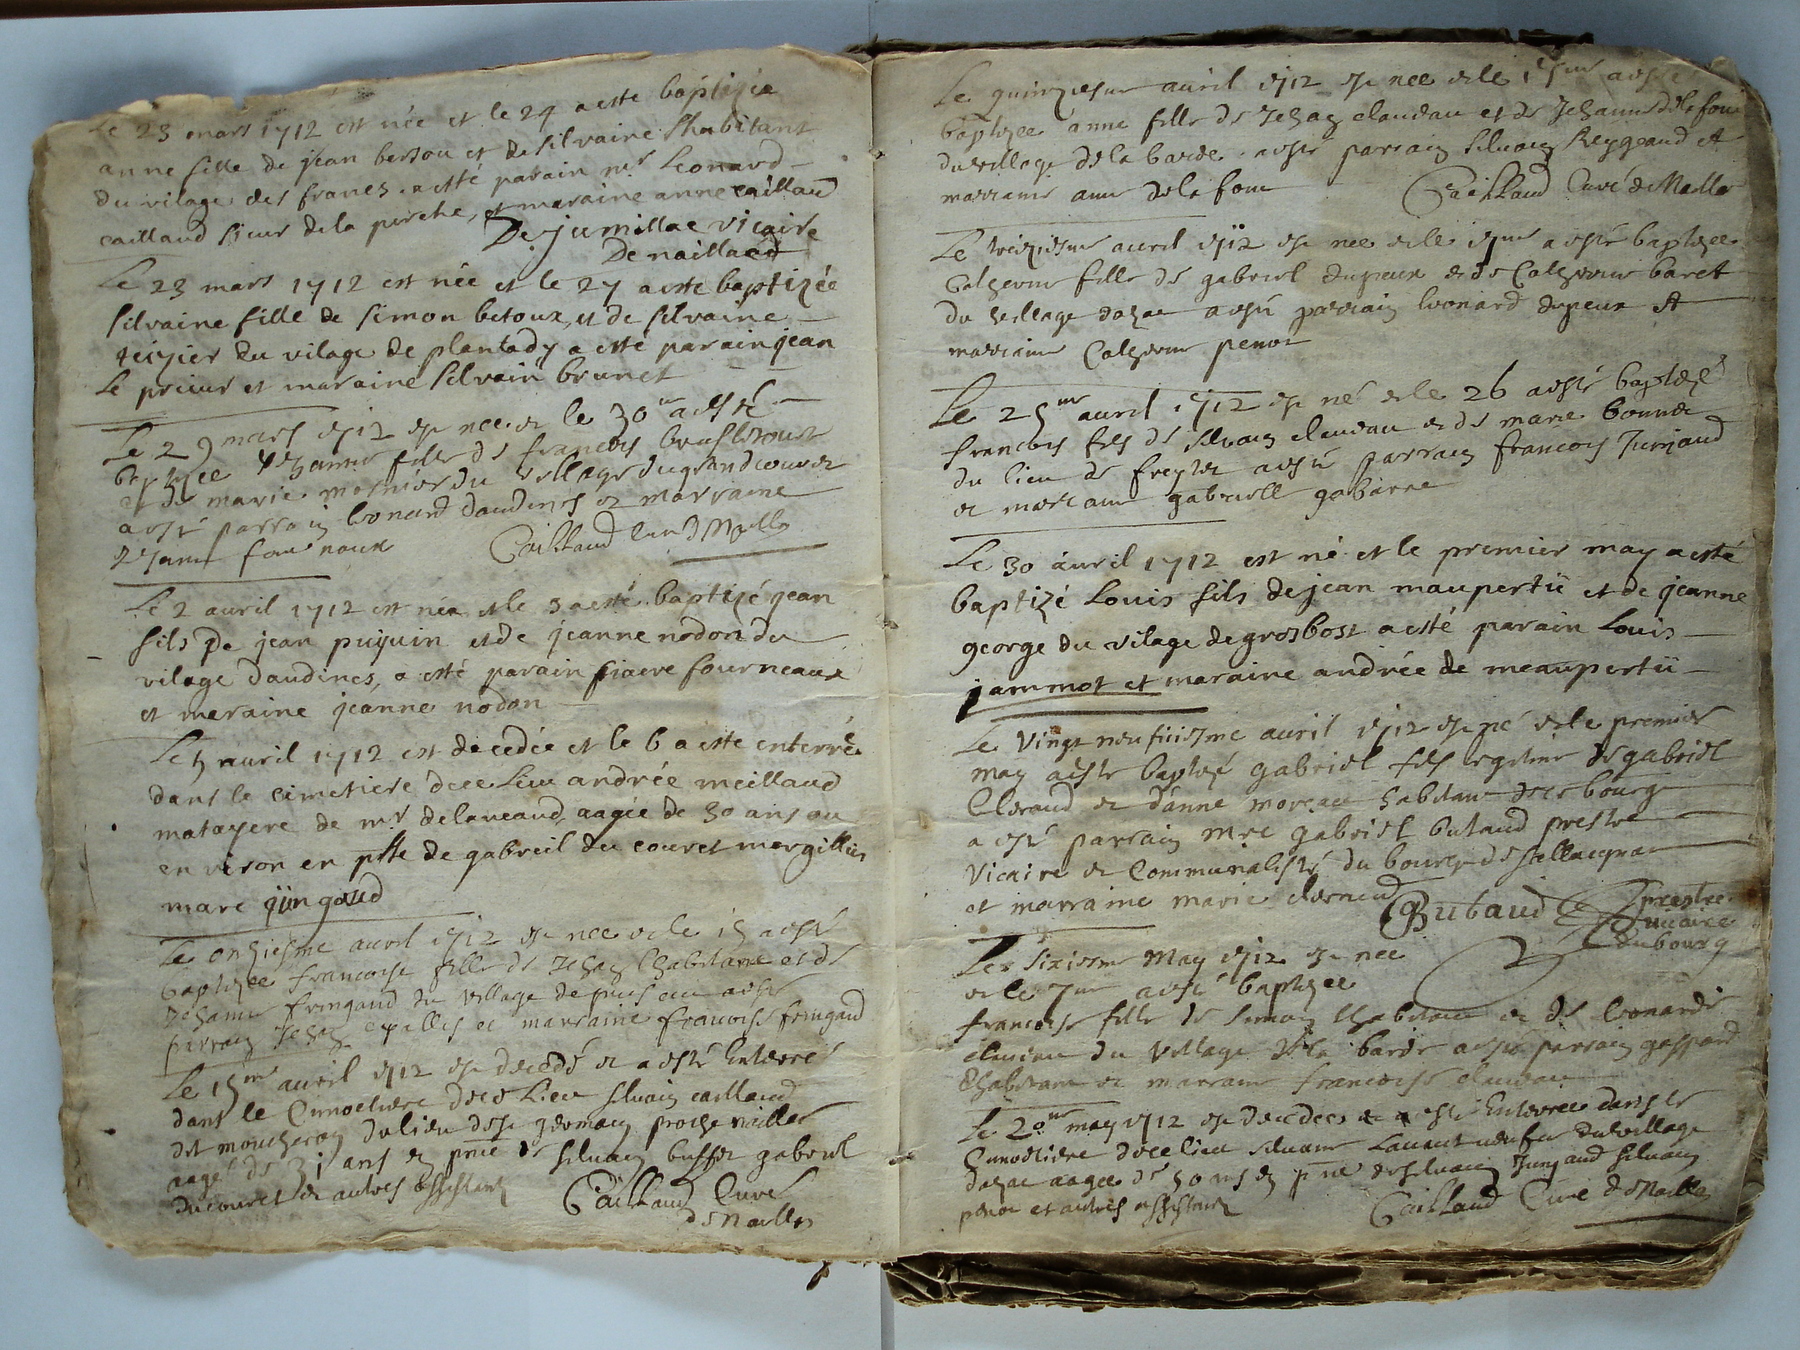 Le 23 mars 1712 est née et le 24 a esté baptizée
anne fille de jean bersou et de silvaine Shabitant
du vilage des francs a esté parain mr Leonard
caillaud sieur de la perche, et maraine anne caillaud
De jumillac vicaire
De naillaed
Le 23 mars 1712 est née et le 27 a esté baptizée
silvaine fille de simon betoux, et de silvaine
du vilage de plantady a esté parain jean
Le prieur et maraine silvain brunet
Le 29 mars 1712 est nee et le 30 a esté
baptizee Jehanne fille de francois
et de marie mornier du village du grand couret
a esté parrain leonard daudines et marraine
Jeanne fourneaux Caillaud
Le 2 avril 1712 est née et le 3 a esté baptizé jean
fils De jean puyuin et de jeanne nodon du
vilage daudines, a esté parain fiacre fourneaux
et maraine jeanne nodon
Le 5 avril 1712 est decedée et le 6 a esté enterrée
dans le cimetiere de ce Lieu andrée meillaud
matayere de mr delaveaud, aagée de 30 ans ou
environ en pnte de gabreil du couret margillier
marc jüngaud
Le onziesme avril 1712 est nee et le 15 a esté
baptizee francoise fille de Jehan Chabitane et de
Jehanne fringaud du village de a esté
parrain Jehan et marraine francoise fringaud
Le 15me avril 1712 est decedé et a esté Enterré
dans le Cimoetiere de ce Lieu silvain caillaud
dit moucheron du lieu de st germain proche naillac
aagé de 31 ans en pnce de silvain busser gabriel
du couret et autres assistans Caillaud Curé
de Naillac
Le quinziesme avril 1712 est nee et le a esté
baptizee anne fille de Jehan claudau et de Jehanne de la font
du village de la barde a esté parrain silvain Reygeaud et
marraine anne de la font Caillaud Curé de Naillac
Le treiziesme avril 1712 est nee et le a esté baptizee
Catherine fille de gabriel dupeux et de Catherine baret
du village dazac a esté parrain leonard dupeux et
marraine Catherine penot
Le 25me avril 1712 est né et le 26 a esté baptizé
francois fils de silvain claudau et de marie bonnet
du lieu de a esté parrain francois Junjaud
et marraine gabrielle gabanne
Le 30 avril 1712 est né et le premier may a esté
baptizé Louis fils de jean maupertü et de jeanne
george du vilage de grosbost a esté parain Louis
jammot et maraine andrée de meaupertü
Le Vingt neufiiesme avril 1712 est né et le premier
may a esté baptizé gabriel fils legitime de gabriel
Cleraud et d'anne moreau habitant de ce bourg
a esté parrain mre gabriel butaud prestre
Vicaire et Communaliste du bourg de
et marraine marie
GButaud prestre
vicaire
du bourg
Le Sixiesme May 1712 est nee
et le 7me a esté baptizee
francoise fille de simon Chabitant et de leonarde
du Village de la barde a esté parrain gaspard
Chabitant et marraine francoise claudau
Le 20me may 1712 est decedee et a esté Enterree dans le
Cimoetiere de ce lieu silvaine du village
dazac aagee de 50 ans en pnce de silvain Junjaud silvain
penot et autres assistans Caillaud Curé de Naillac